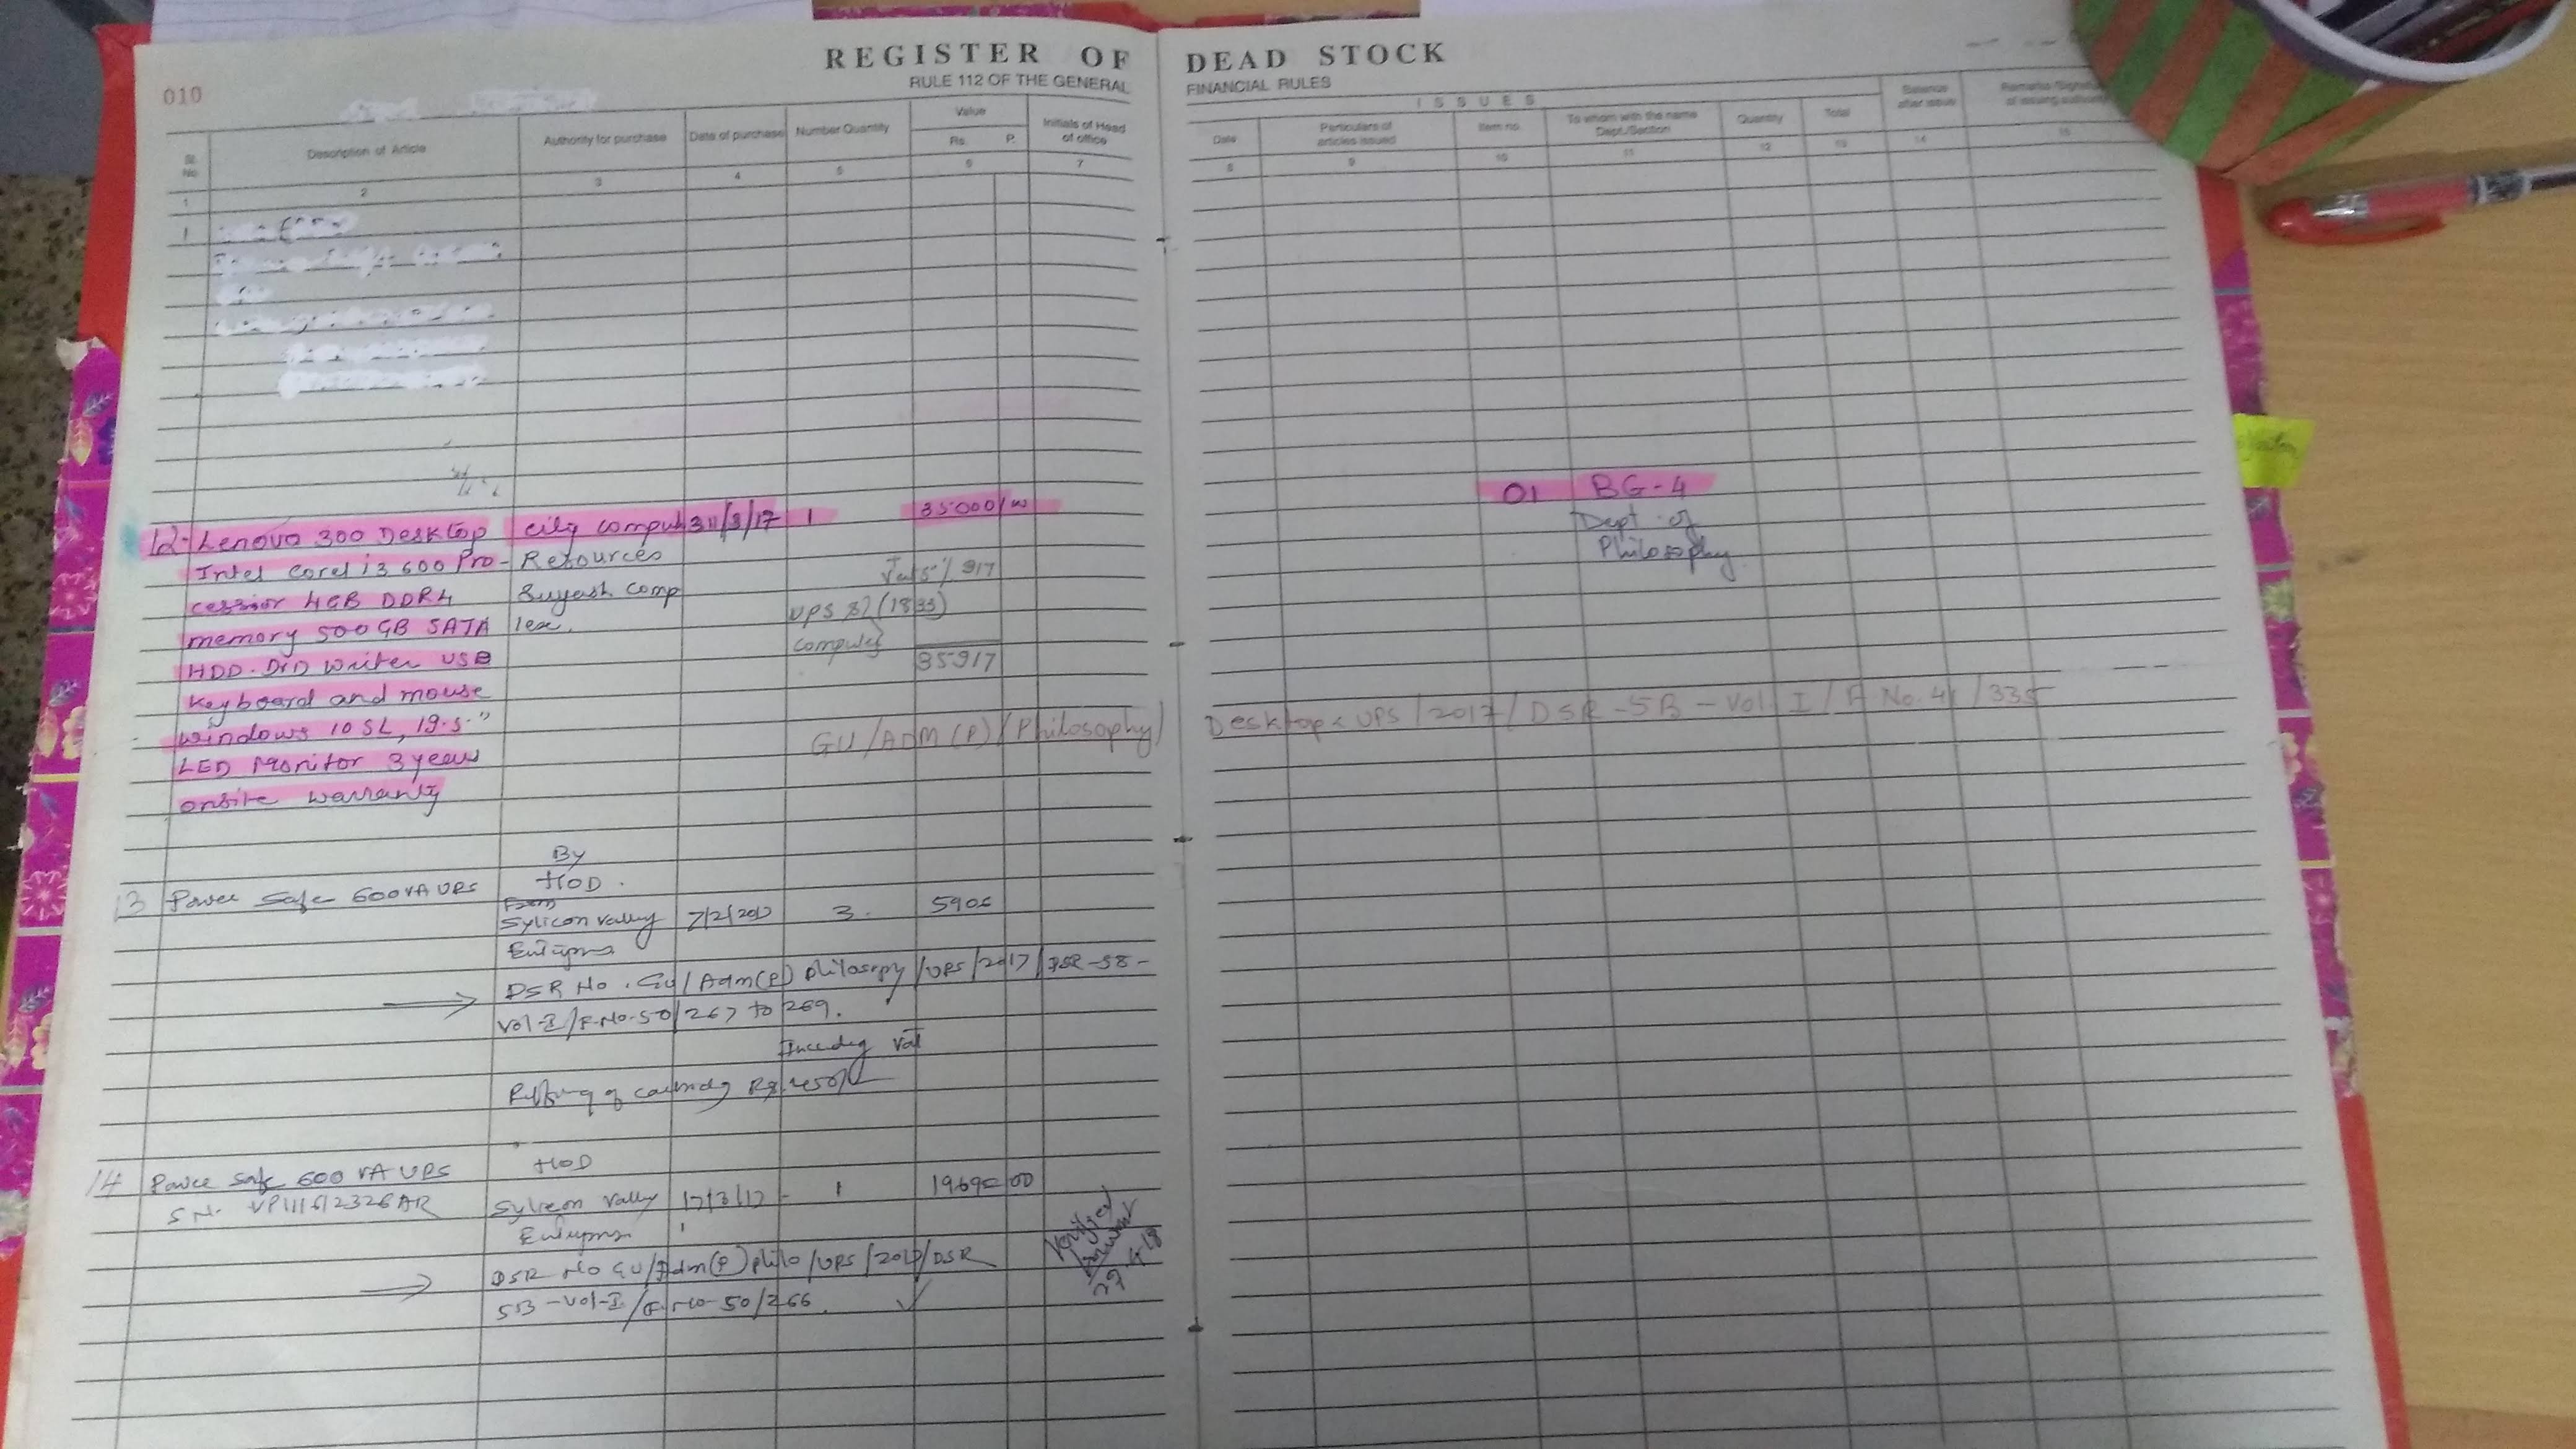 REGISTER OF DEAD STOCK
RULE 112 OF THE GENERAL FINANCIAL RULES
010
Sl. No. Description of Article Authority for purchase Date of purchase Number Quantity Value Rs. P. Initials of Head of office
ISSUES
Date Particulars of articles issued Item no. To whom with the name Dept./Section Quantity Total Balance after issue
1 2 3 4 5 6 7
8 9 10 11 12 13 14 15
1
12- Lenovo 300 Desktop City comput 31/3/17 1 35000/
01 BG-4
Intel Corel i3 600 Pro- Resources
Dept. of
cessior 4GB DDR4 Suyash Comp
Philosophy
Vat 5% 917
memory 500GB SATA lex.
UPS & (1833)
HDD. DVD writer USB
computer
35917
Keyboard and mouse
windows 10 SL, 19.5"
GU/ADM(P)/Philosophy/ Desktop & UPS/2017/DSR-5B-Vol. I/F No. 41/335
LED Monitor 3 years
onsite warranty
By
HOD.
13 Power Safe 600VA UPS
From
Sylicon Valley 7/2/2017 3. 5906
DSR No. GU/Adm(P) philosopy/UPS/2017/DSR-5B-
Vol-I/F.No-50/267 to 269.
Vat
14 Power Safe 600 VA UPS HOD
S No. VP111612326AR Sylicon Valley 17/3/17 - 1 00
DSR No GU/Adm(P)philo/UPS/2017/DSR
5B-Vol-I/F.No-50/266.
Verified